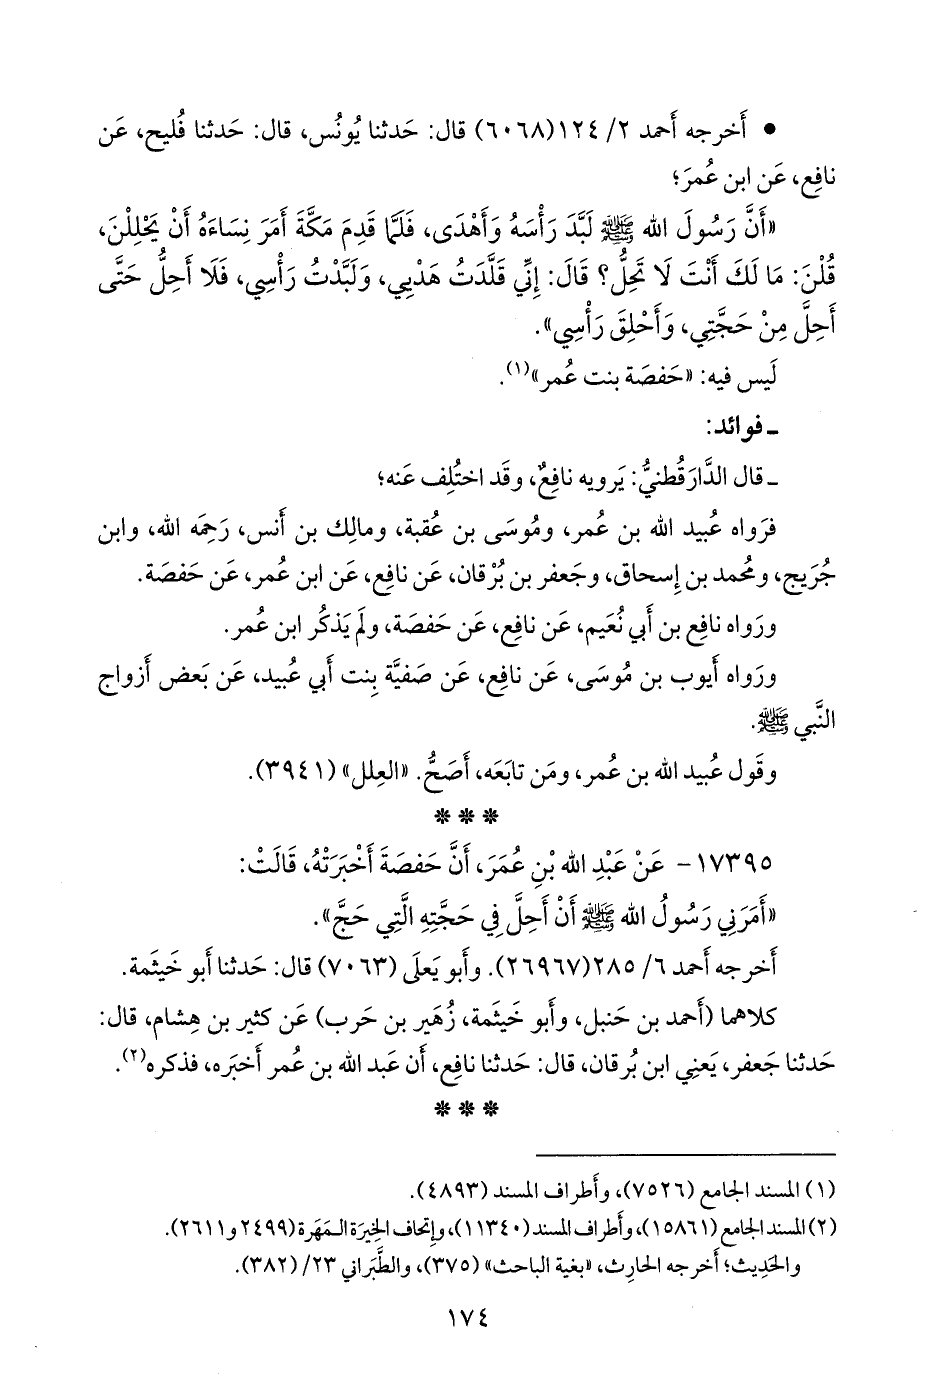 • أَخرجه أَحمد ٢/ ١٢٤(٦٠٦٨) قال: حَدثنا يُونُس، قال: حَدثنا فُليح، عَن
نافِع، عَن ابن عُمرَ؛
«أَنَّ رَسُولَ الله ﷺ لَبَّدَ رَأْسَهُ وَأَهْدَى، فَلَمَّا قَدِمَ مَكَّةَ أَمَرَ نِسَاءَهُ أَنْ يَحْلِلْنَ،
قُلْنَ: مَا لَكَ أَنْتَ لَا تَحِلُّ؟ قَالَ: إِنِّي قَلَّدَتُ هَدْيِي، وَلَبَّدْتُ رَأْسِي، فَلَا أَحِلُّ حَتَّى
أَحِلَّ مِنْ حَجَّتِي، وَأَحْلِقَ رَأْسِي».
لَيس فيه: «حَفصَة بنت عُمر»(١).
ـ فوائد:
ـ قال الدَّارَقُطنيُّ: يَرويه نافِعٌ، وقَد اختُلِف عَنه؛
فرَواه عُبيد الله بن عُمر، ومُوسَى بن عُقبة، ومالِك بن أَنس، رَحِمَه الله، وابن
جُرَيج، ومُحمد بن إِسحاق، وجَعفر بن بُرْقان، عَن نافِع، عَن ابن عُمر، عَن حَفصَة.
ورَواه نافِع بن أَبي نُعَيم، عَن نافِع، عَن حَفصَة، ولَم يَذكُر ابن عُمر.
ورَواه أَيوب بن مُوسَى، عَن نافِع، عَن صَفيَّة بِنت أَبي عُبيد، عَن بَعض أَزواج
النَّبي ﷺ.
وقَول عُبيد الله بن عُمر، ومَن تابَعَه، أَصَحُّ. «العِلل» (٣٩٤١).
* * *
١٧٣٩٥- عَنْ عَبْدِ الله بْنِ عُمَرَ، أَنَّ حَفصَةَ أَخْبَرَتْهُ، قَالَتْ:
«أَمَرَنِي رَسُولُ الله ﷺ أَنْ أَحِلَّ فِي حَجَّتِهِ الَّتِي حَجَّ».
أَخرجه أَحمد ٦/ ٢٨٥(٢٦٩٦٧). وأَبو يَعلَى (٧٠٦٣) قال: حَدثنا أَبو خَيثَمة.
كلاهما (أَحمد بن حَنبل، وأَبو خَيثَمة، زُهَير بن حَرب) عَن كثير بن هِشام، قال:
حَدثنا جَعفر، يَعنِي ابن بُرقان، قال: حَدثنا نافِع، أَن عَبد الله بن عُمر أَخبَره، فذكره(٢).
* * *
(١) المسند الجامع (٧٥٢٦)، وأَطراف المسند (٤٨٩٣).
(٢) المسند الجامع (١٥٨٦١)، وأَطراف المسند (١١٣٤٠)، وإتحاف الخِيرَة المَهَرة (٢٤٩٩ و٢٦١١).
والحَدِيث؛ أَخرجه الحارِث، «بغية الباحث» (٣٧٥)، والطَّبَراني ٢٣/ (٣٨٢).
١٧٤